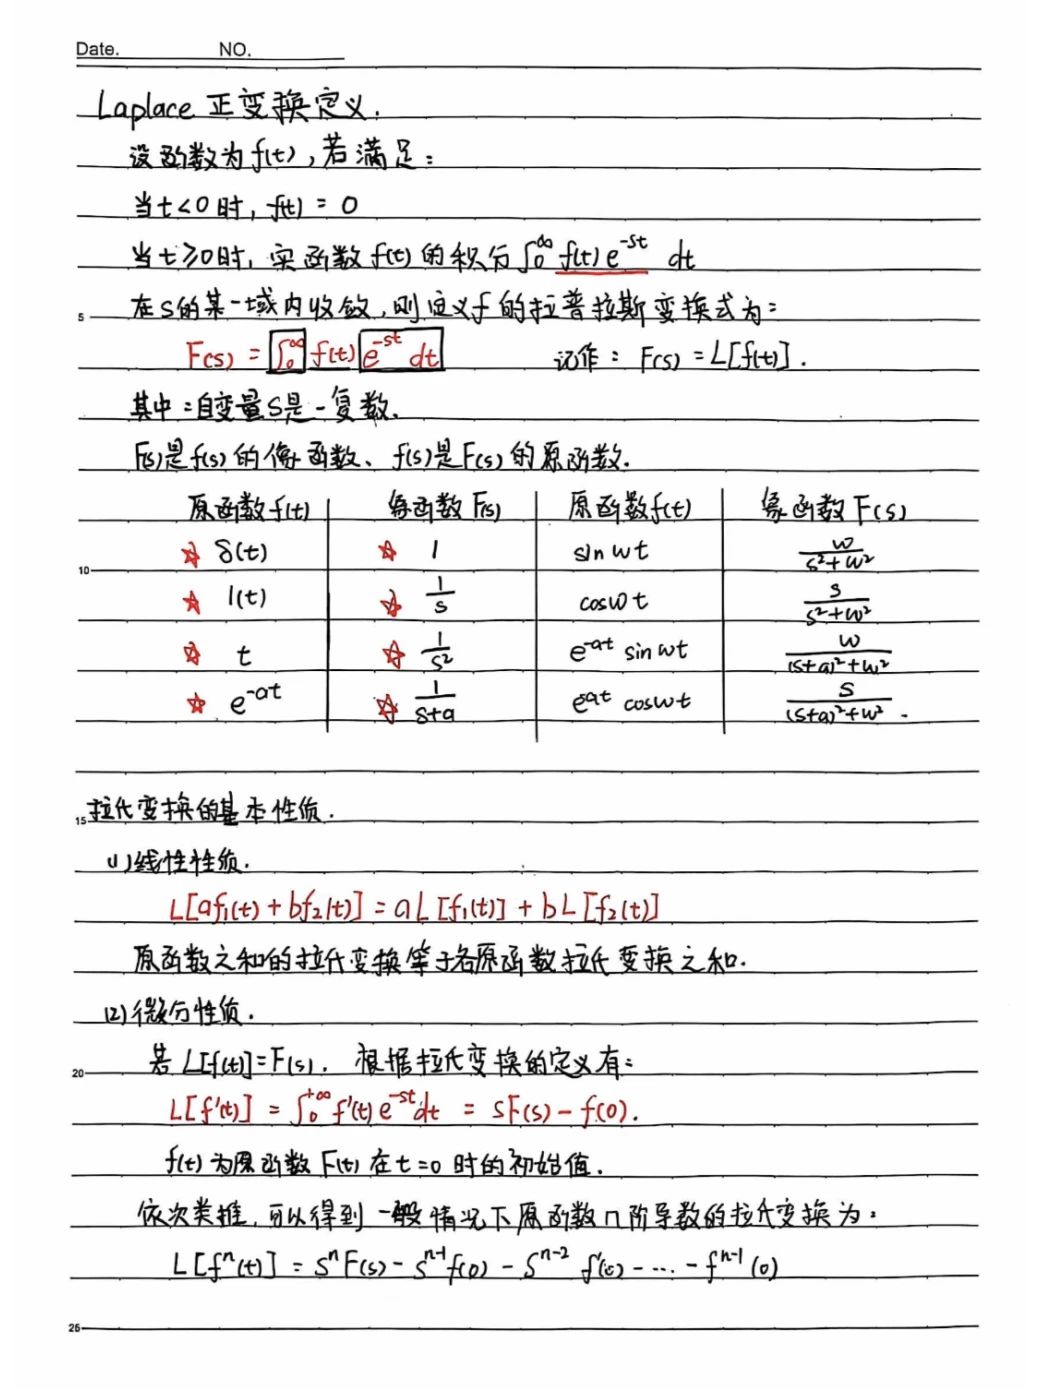 Date. NO.
Laplace 正变换定义.
设函数为f(t),若满足:
当t<0时, f(t) = 0
当t≥0时, 实函数f(t)的积分∫₀^∞ f(t)e^-st dt
5 在S的某一域内收敛,则定义f的拉普拉斯变换式为:
F(s) = ∫₀^∞ f(t) e^-st dt 记作: F(s) = L[f(t)].
其中:自变量S是一复数.
F(s)是f(s)的像函数、f(s)是F(s)的原函数.
原函数f(t) 象函数F(s) 原函数f(t) 象函数F(s)
10 ☆ δ(t) ☆ 1 sin wt w/(s²+w²)
☆ 1(t) ☆ 1/s cosw t s/(s²+w²)
☆ t ☆ 1/s² e^-at sin wt w/((s+a)²+w²)
☆ e^-at ☆ 1/(s+a) e^at coswt s/((s+a)²+w²).
15 拉氏变换的基本性质.
(1)线性性质.
L[af₁(t) + bf₂(t)] = aL[f₁(t)] + bL[f₂(t)]
原函数之和的拉氏变换等于各原函数拉氏变换之和.
(2)微分性质.
20 若L[f(t)]=F(s), 根据拉氏变换的定义有:
L[f'(t)] = ∫₀^+∞ f'(t)e^-st dt = sF(s) - f(0).
f(t)为原函数F(t)在t=0时的初始值.
依次类推,可以得到一般情况下原函数n阶导数的拉氏变换为:
L[fⁿ(t)] = SⁿF(s) - S^n-1 f(0) - S^n-2 f'(0) - ... - f^n-1(0)
25